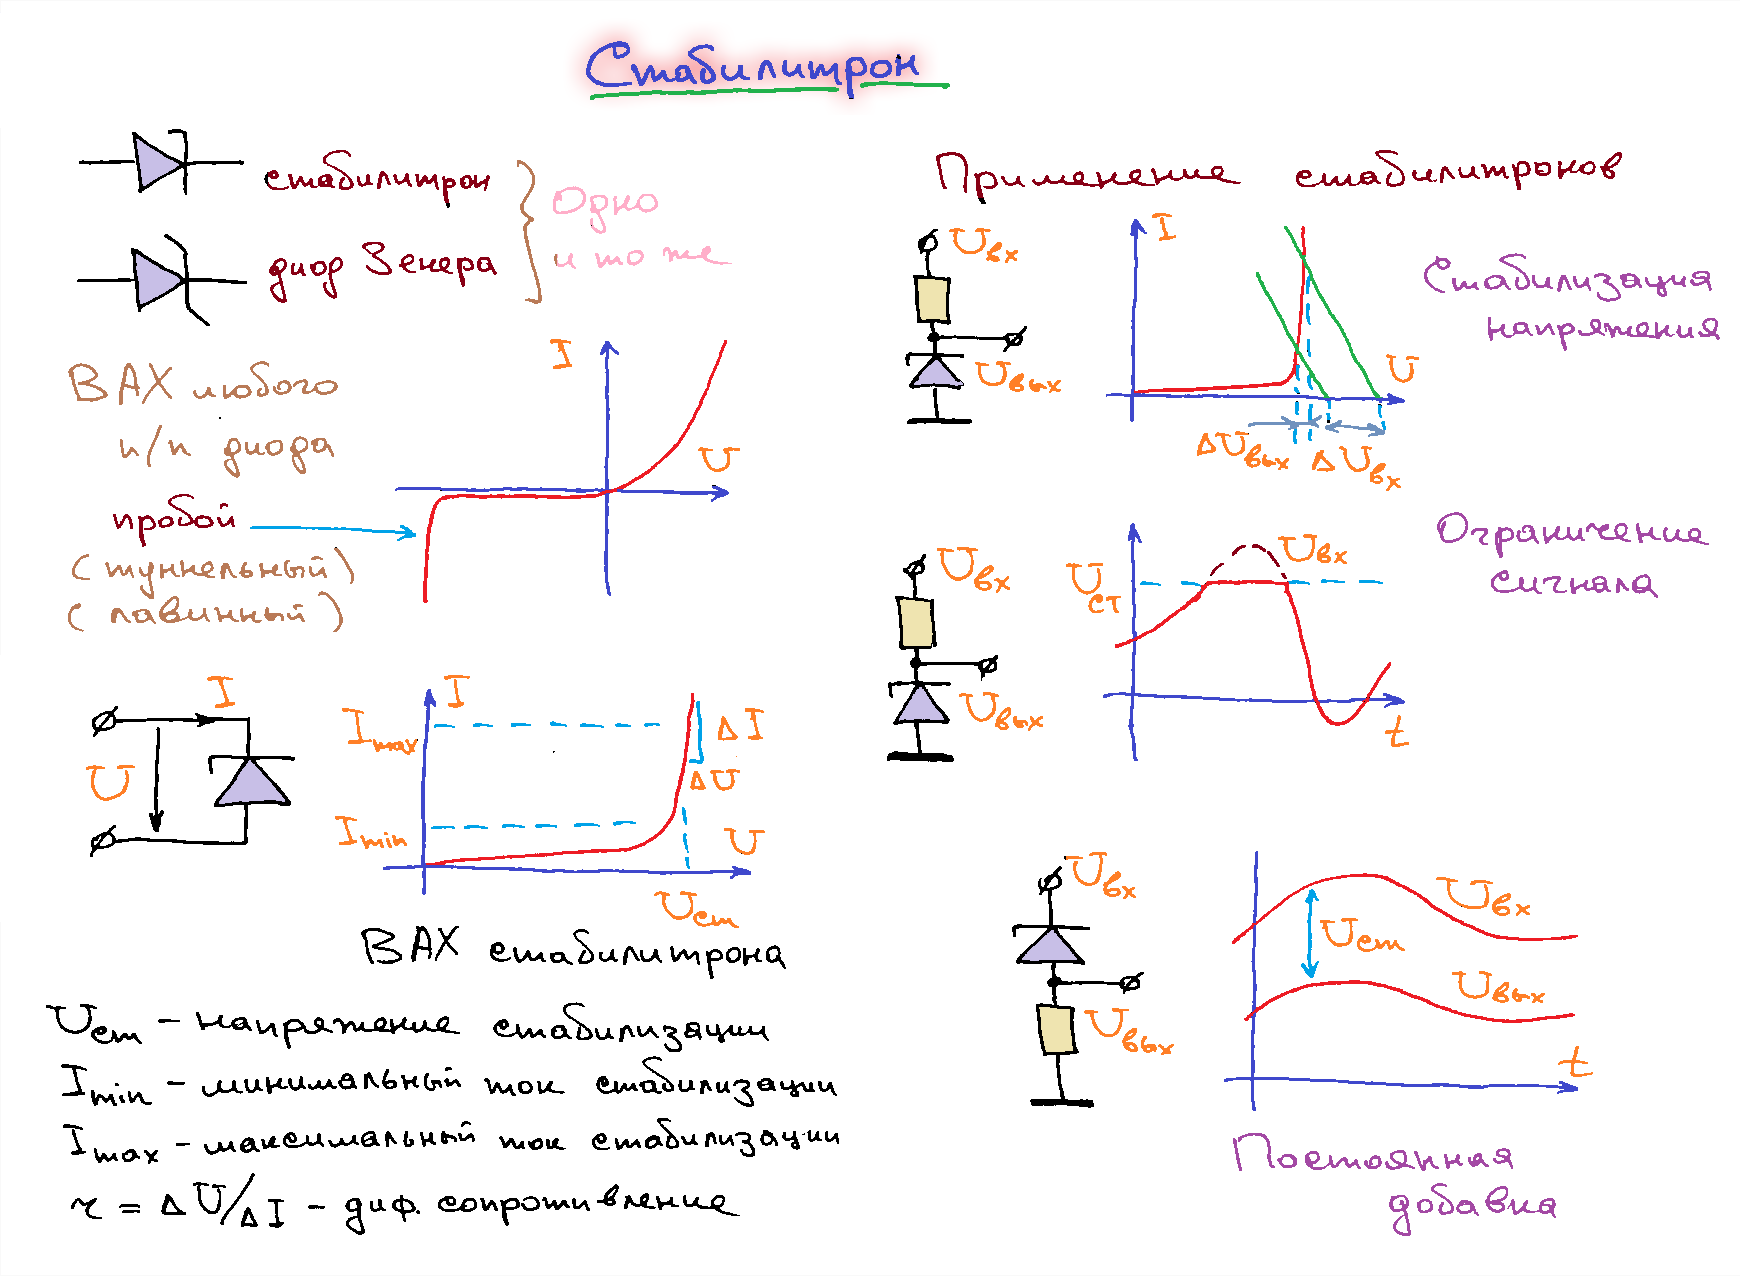 Стабилитрон
стабилитрон
диод Зенера
Одно
и то же
ВАХ любого
п/п диода
I
U
пробой
(туннельный)
(лавинный)
I
U
I
Imax
Imin
ΔI
ΔU
U
Uст
ВАХ стабилитрона
Uст - напряжение стабилизации
Imin - минимальный ток стабилизации
Imax - максимальный ток стабилизации
r = ΔU/ΔI - диф. сопротивление
Применение стабилитронов
Uвх
Uвых
I
U
ΔUвых ΔUвх
Стабилизация
напряжения
Uвх
Uвых
Uст
Uвх
t
Ограничение
сигнала
Uвх
Uвых
Uвх
Uст
Uвых
t
Постоянная
добавка